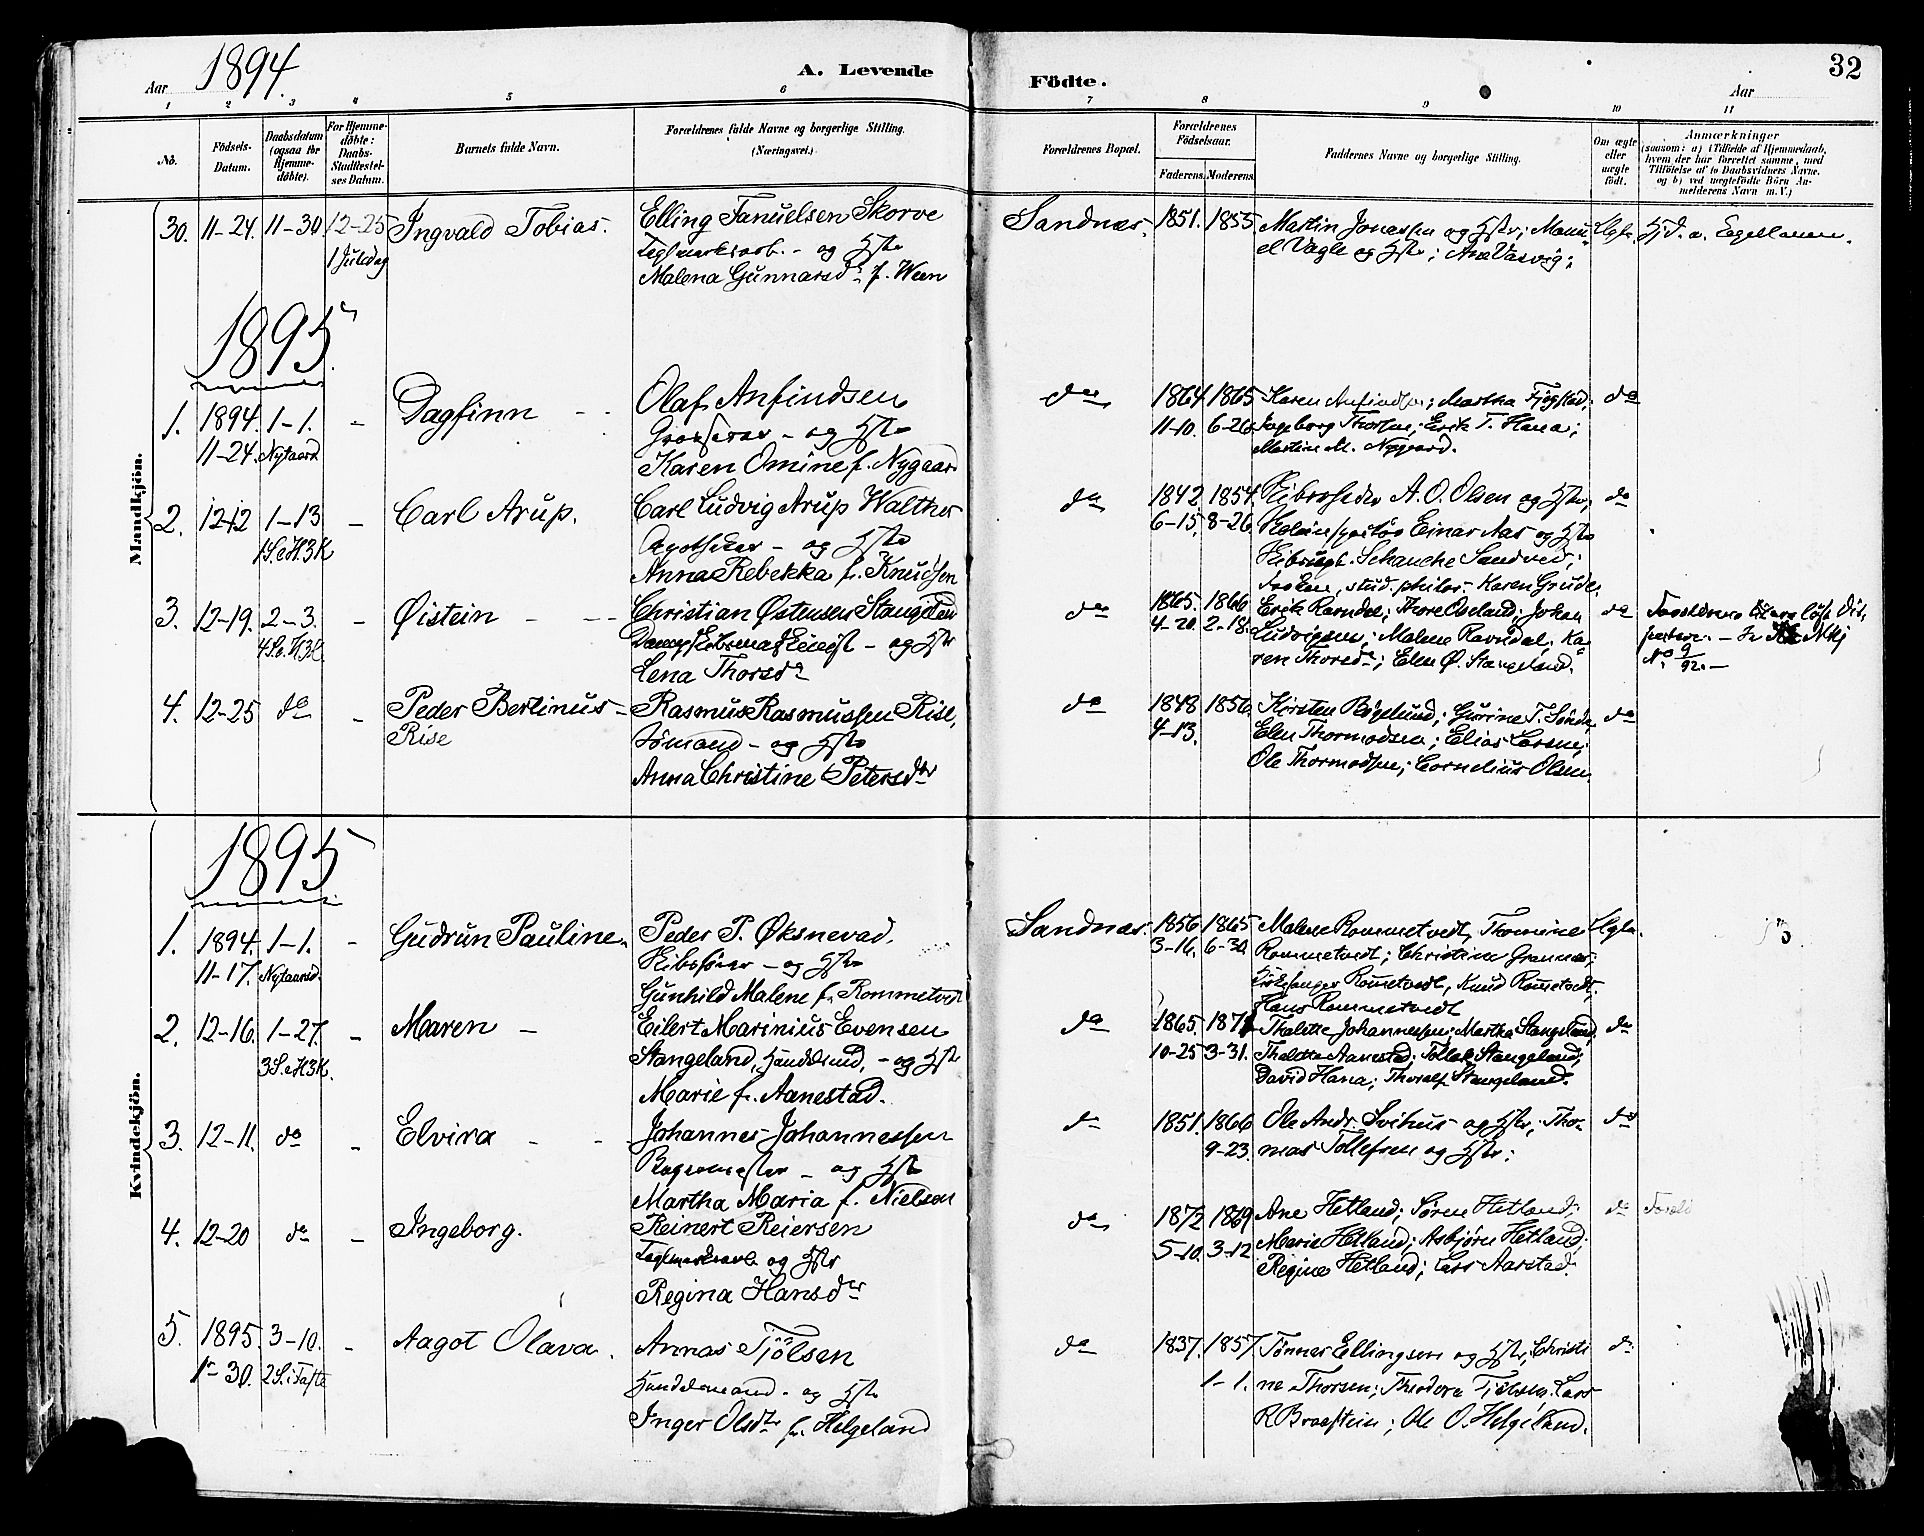 Aar 1894. A. Levende
Födte. Aar 32
1 2 3 4 5 6 7 8 9 10 11
No. Födsels-Datum. Daabsdatum (ogsaa for Hjemme-döbte). For Hjemme-döbte: Daabs-Stadfæstel-ses Datum. Barnets fulde Navn. Forældrenes fulde Navne og borgerlige Stilling. (Næringsvei.) Forældrenes Bopæl. Forældrenes Födselsaar. Faderens. Moderens. Faddernes Navne og borgerlige Stilling. Om ægte eller uægte födt. Anmærkninger (saasom: a) i Tilfælde af Hjemmedaab, hvem der har forrettet samme, med Tilföielse af to Daabsvidners Navne, og b) ved uægtefödte Börn An-melderens Navn m. V.)
Mandkjön.
30. 11-24. 11-30 12-25 Ingvald Tobias. Elling Tanuelsen Skorve Sandnæs. 1851. 1855 Martin Jonassen og Hstr; Manu-
1 Juledag og Hstr el Vagle og Hstr; Ana Vasvig;
Malena Gunnarsdr f. Ween
1895.
1. 1894. 1-1. - Dagfinn Olaf Anfindsen do 1864. 1865 Karen Anfindsen; Martha Fjogstad; do
11-24. Nytaarsd Grosserer - og Hstr 11-10. 6-26. Ingeborg Thorsen; Erik T. Hana;
Karen Omine f. Nygaard Martine M. Nygaard.
2. 12-12 1-13 - Carl Arup. Carl Ludvig Arup Walther do 1842. 1854. A. O. Olsen og Hstr; do
1 S. e. H. 3 K Apotheker - og Hstr 6-15. 8-26. Einar Aas og Hstr
Anna Rebekka f. Knudsen Schancke Sandved;
stud. philos. Karen Grude.
3. 12-19. 2-3. - Øistein Christian Østensen Stangeland do 1865. 1866 Erik Ravndal; Thore Oseland; Johan do
4 S. e. H. 3 K. - og Hstr 4-20. 2-18. Ludvigsen; Malene Ravndal; Ka-
Lena Thorsdr ren Thorsdr; Elen Ø. Stangeland. No 9/92.
4. 12-25 do - Peder Bertinus Rasmus Rasmussen Rise, do 1848 1856. Kirsten Bøgelund; Gurine T. do
Rise Sømand - og Hstr 4-13. Elen Thormodsen; Elias Larsen;
Anna Christine Petersdtr Ole Thormodsen; Cornelius Olsen.
Kvindekjön.
1895
1. 1894. 1-1. - Gudrun Pauline. Peder P. Øksnevad. Sandnæs. 1856 1865 Malene Rommetvedt, Thomine
11-17. Nytaarsd. Skibsfører - og Hstr 3-16. 6-30. Rommetvedt; Christine Grannæs;
Gunhild Malene f. Rommetvedt Kirkesanger Rommetvedt, Knud Rommetvedt.
Hans Rommetvedt
2. 12-16. 1-27. - Maren - Eilert Marinius Evensen do 1865. 1871. Thalette Johannessen; Martha Stangeland; do
3 S. e. H 3 K. Stangeland, - og Hstr 10-25 3-31. Thalette Aanestad; Tollak Stangeland;
Marie f. Aanestad. David Hana; Thoralf Stangeland.
3. 12-11. do - Elvira Johannes Johannessen do 1851. 1866 Ole Andr. Svihus og Hstr; Tho- do
Bagermester - og Hstr 9-23. mas Tollefsen og Hstr;
Martha Maria f. Nielsen
4. 12-20 do - Ingeborg. Reinert Reiersen do 1872 1869 Ane Hetland; Søren Hetland; do
og Hstr 5-10. 3-12. Marie Hetland; Asbjørn Hetland;
Regina Hansdtr Regine Hetland; Lars Aarstad.
5. 1895. 3-10. - Aagot Olava. Annas Tjölsen do 1837. 1857. Tønnes Ellingsen og Hstr; Christi- do
1-30. 2 S. i Faste Handelsmand - og Hstr 1-1. ne Thorsen; Theodora Tjölsen; Lars
Inger Olsdtr f. Helgeland R Braastein; Ole O. Helgeland.